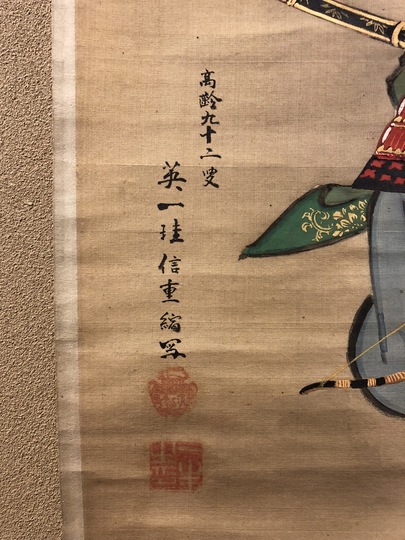 高齢九十二叟
英一珪信重縮写